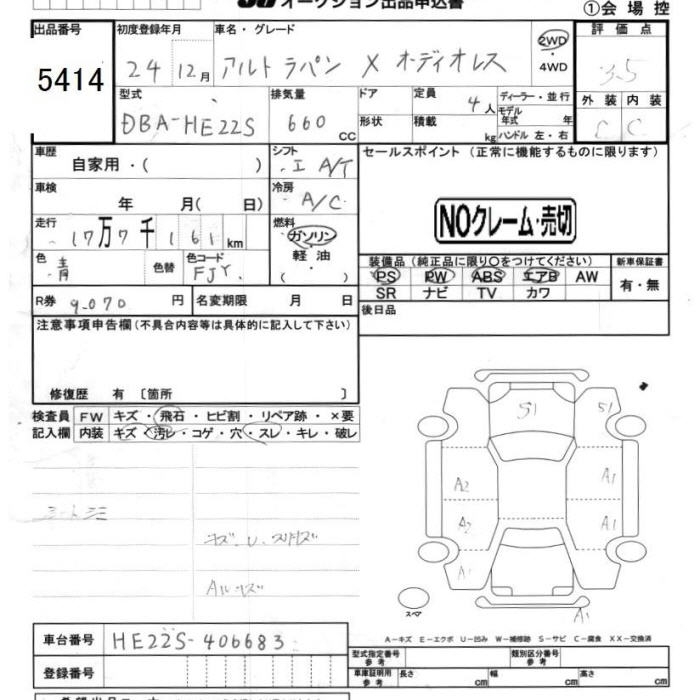 オークション出品申込書
①会場控
出品番号 5414
初度登録年月 24 12月
車名・グレード アルトラパン X オーディオレス
2WD・4WD
評価点 3.5
外装 C 内装 C
型式 DBA-HE22S
排気量 660 CC
ドア 形状
定員 4人 積載 kg
ディーラー・並行
モデル年式 年
ハンドル 左・右
車歴 自家用・( )
シフト I A/T
セールスポイント (正常に機能するものに限ります)
車検 年 月( 日)
冷房 A/C
NOクレーム・売切
走行 17万7千161km
燃料 ガソリン・軽油・( )
色 青 色替
色コード FJY
装備品 (純正品に限り○をつけてください)
PS PW ABS エアB AW
SR ナビ TV カワ
新車保証書 有・無
R券 9,070円
名変期限 月 日
後日品
注意事項申告欄(不具合内容等は具体的に記入して下さい)
修復歴 有 〔箇所 〕
検査員記入欄
FW キズ・飛石・ヒビ割・リペア跡・×要
内装 キズ・汚レ・コゲ・穴・スレ・キレ・破レ
シートシミ
キズ U
S1 S1
A2 A1
A2 A1
A1
スペア A1
A-キズ E-エクボ U-凹み W-補修跡 S-サビ C-腐食 XX-交換済
車台番号 HE22S-406683
登録番号
型式指定番号 参考
類別区分番号 参考
車庫証明用 参考 長さ cm 幅 cm 高さ cm